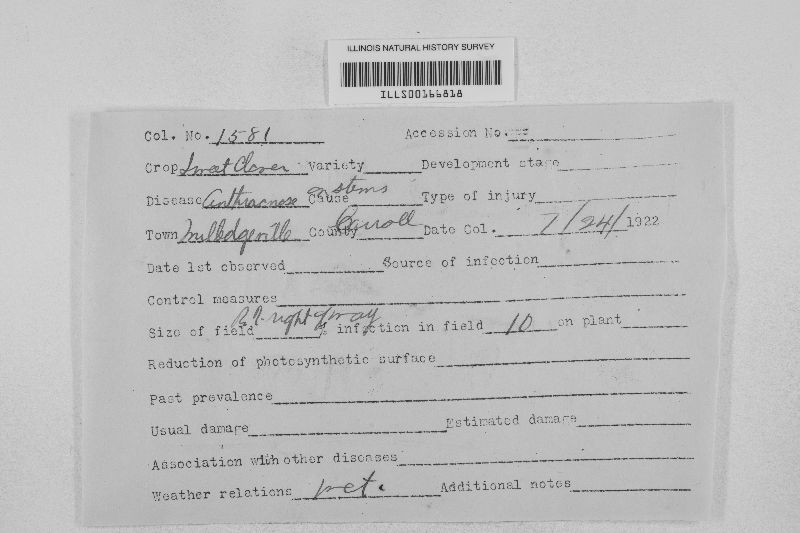 ILLINOIS NATURAL HISTORY SURVEY
ILLS00166818
Col. No. 1581 Accession No.
Crop Sweet Clover Variety Development stage
Disease Anthracnose on stems Cause Type of injury
Town Milledgeville County Carroll Date Col. 7/24/1922
Date 1st observed Source of infection
Control measures
Size of field R.R. right of way % infection in field 10 on plant
Reduction of photosynthetic surface
Past prevalence
Usual damage Estimated damage
Association with other diseases
Weather relations wet. Additional notes